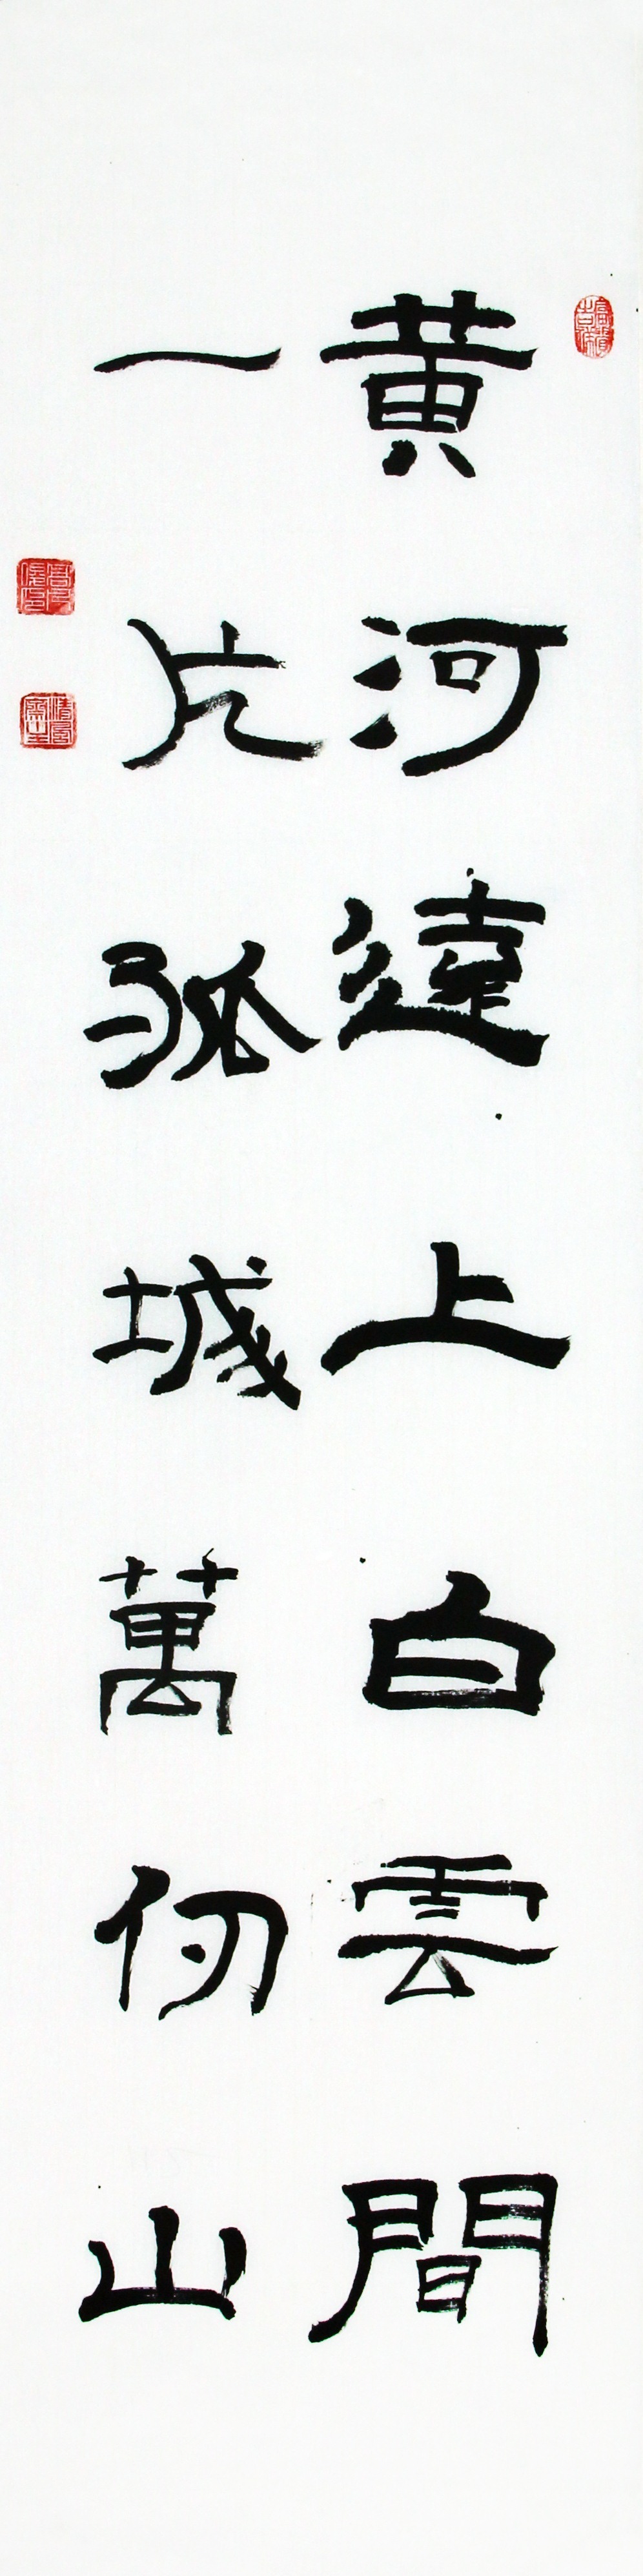 黃河遠上白雲間
一片孤城萬仞山